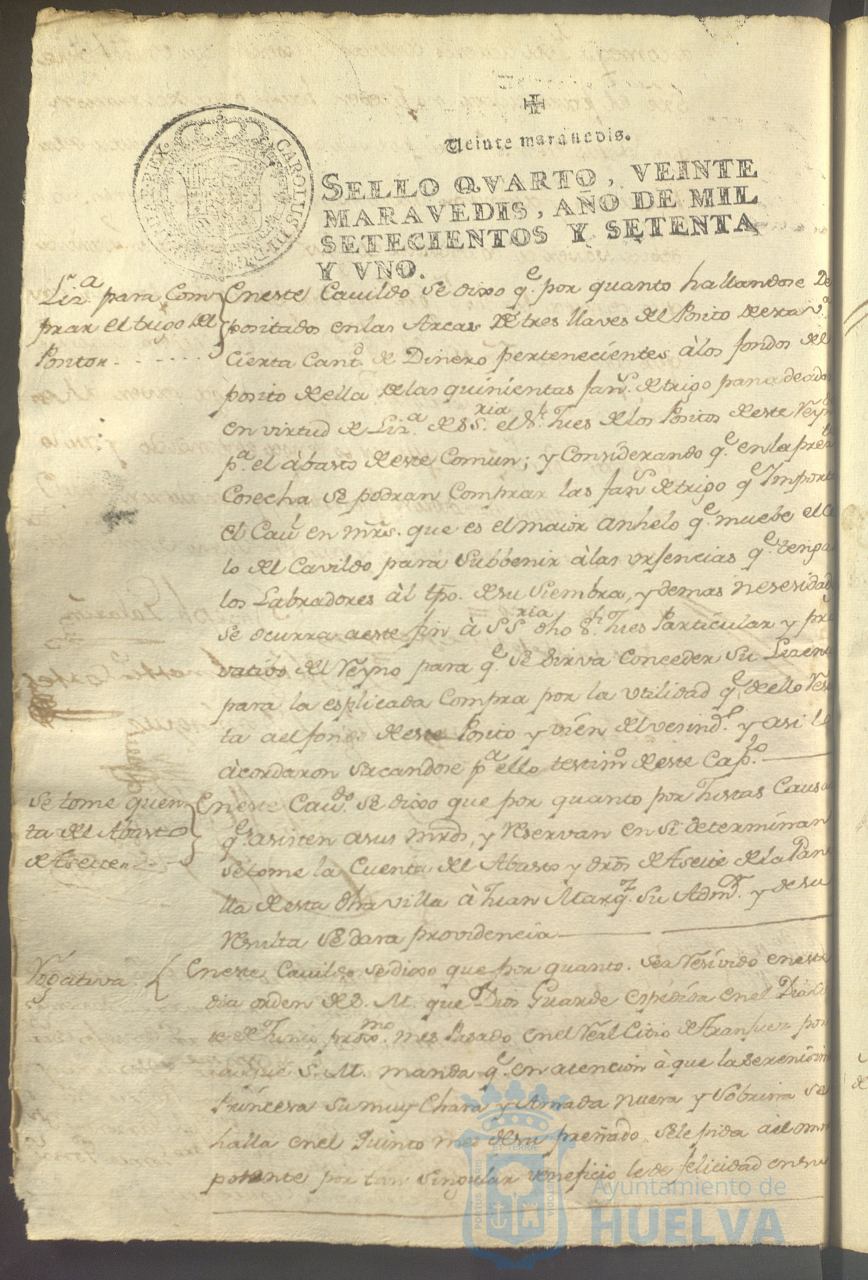 ✠
Veinte marauedis.
SELLO QVARTO, VEINTE
MARAVEDIS, AÑO DE MIL
SETECIENTOS Y SETENTA
Y VNO.
CAROLUS III
HISPANIAR. REX.
Liz.ª para Com
prar el trigo del
Posito
En este Cavildo se dixo q.e por quanto hallandose De
positados en las Arcas de tres llaves del Posito de esta v.ª
Cierta Cant.d de Dinero pertenecientes à los fondos del
posito de ella de las quinientas fan.s de trigo panadeadas
en virtud de Liz.ª de S S.ria el S.r Jues de los Positos de este Reyn
p.ª el àbasto de este Comun; y Considerando q.e en la pres
Cosecha se podran Comprar las fan.s de trigo q.e Import
el Cau.l en mrs. que es el maior anhelo q.e muebe el C
lo del Cavildo para Subbenir à las urjencias q.e tenga
los Labradores àl tpo. de su Siembra, y demas nesesidad
se ocurra a este fin à S S.ria dho S.r Jues Particular y pri
vativo del Reyno para q.e se sirva Conceder su Lizen
para la esplicada Compra por la utilidad q.e de ello Res
ta a el fondo de este Posito y vien del vesind.o y asi lo
àcordaron sacandose p.ª ello testim.o de este Cap.lo
Se tome quen
ta del Abasto
de Aseite
En este Cau.do se dixo que por quanto por Justas Causa
q.e asisten a sus mrds, y Reservan en si determinan
se tome la Cuenta del Abasto y dros de Aseite de la Pan
lla de esta dha villa à Juan Marq.z su Adm.or y de su
Resulta se dara providencia
Rogativa.
En este Cavildo se dixo que por quanto se a Resivido en este
dia orden de S. M. que Dios Guarde espedida en el Dia
de Junio prox.mo mes Pasado en el Real Citio de Aranjuez por
la que S. M. manda q.e en atencion à que la serenisim
Princesa su muy Chara y Amada nuera y Sobrina se
halla en el Quinto mes de su preñado se le pida àl omni
potente por tan singular veneficio le de felicidad en su
Ayuntamiento de
HUELVA